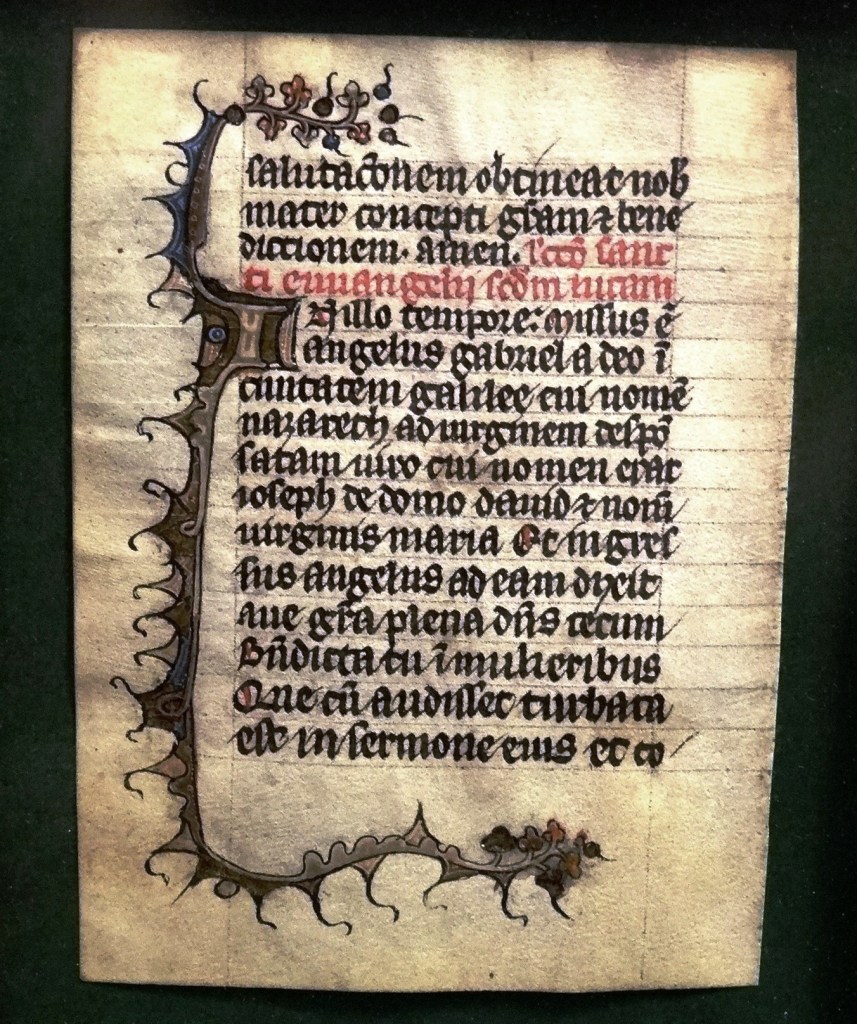 salutac̃onem obtineat nob̃
mater concepti gr̃am ⁊ bene
dictionem· amen· lcc̃o sanc
ti euuangelij scd̃m lucam
IN illo tempore: missus ẽ
angelus gabriel a deo ĩ
ciuitatem galilee cui nomẽ
nazareth ad uirginem despõ
satam uiro cui nomen erat
ioseph de domo dauid ⁊ nom̃
uirginis maria Et ingres
sus angelus ad eam dixit
aue gr̃a plena dñs tecum
Bñdicta tu ĩ mulieribus
Que cũ audisset turbata
est in sermone eius et co